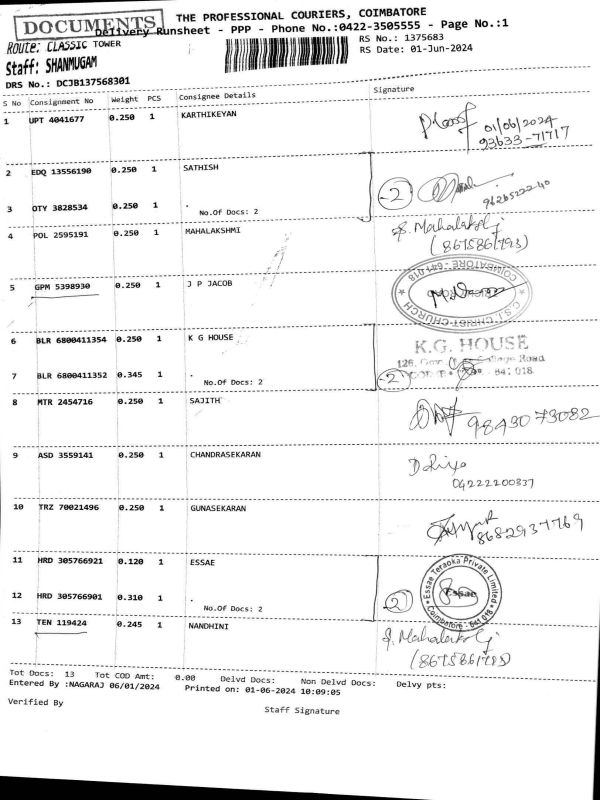 DOCUMENTS
THE PROFESSIONAL COURIERS, COIMBATORE
Delivery Runsheet - PPP - Phone No.:0422-3505555 - Page No.:1
Route: CLASSIC TOWER
RS No.: 1375683
Staff: SHANMUGAM
RS Date: 01-Jun-2024
DRS No.: DCJB137568301
S No Consignment No Weight PCS Consignee Details Signature
1 UPT 4041677 0.250 1 KARTHIKEYAN
01/06/2024
93633-71717
2 EDQ 13556190 0.250 1 SATHISH
2
3 OTY 3828534 0.250 1 .
No.Of Docs: 2
4 POL 2595191 0.250 1 MAHALAKSHMI
5 GPM 5398930 0.250 1 J P JACOB
C.S.I. CHRIST CHURCH
COIMBATORE - 641 018
6 BLR 6800411354 0.250 1 K G HOUSE
K.G. HOUSE
7 BLR 6800411352 0.345 1 .
No.Of Docs: 2
2
641 018.
8 MTR 2454716 0.250 1 SAJITH
98430 73082
9 ASD 3559141 0.250 1 CHANDRASEKARAN
04222200337
10 TRZ 70021496 0.250 1 GUNASEKARAN
8682937769
11 HRD 305766921 0.120 1 ESSAE
Essae Teraoka Private Limited
Essae
Coimbatore - 641 018
12 HRD 305766901 0.310 1 .
No.Of Docs: 2
2
13 TEN 119424 0.245 1 NANDHINI
Tot Docs: 13 Tot COD Amt: 0.00 Delvd Docs: Non Delvd Docs: Delvy pts:
Entered By :NAGARAJ 06/01/2024 Printed on: 01-06-2024 10:09:05
Verified By
Staff Signature